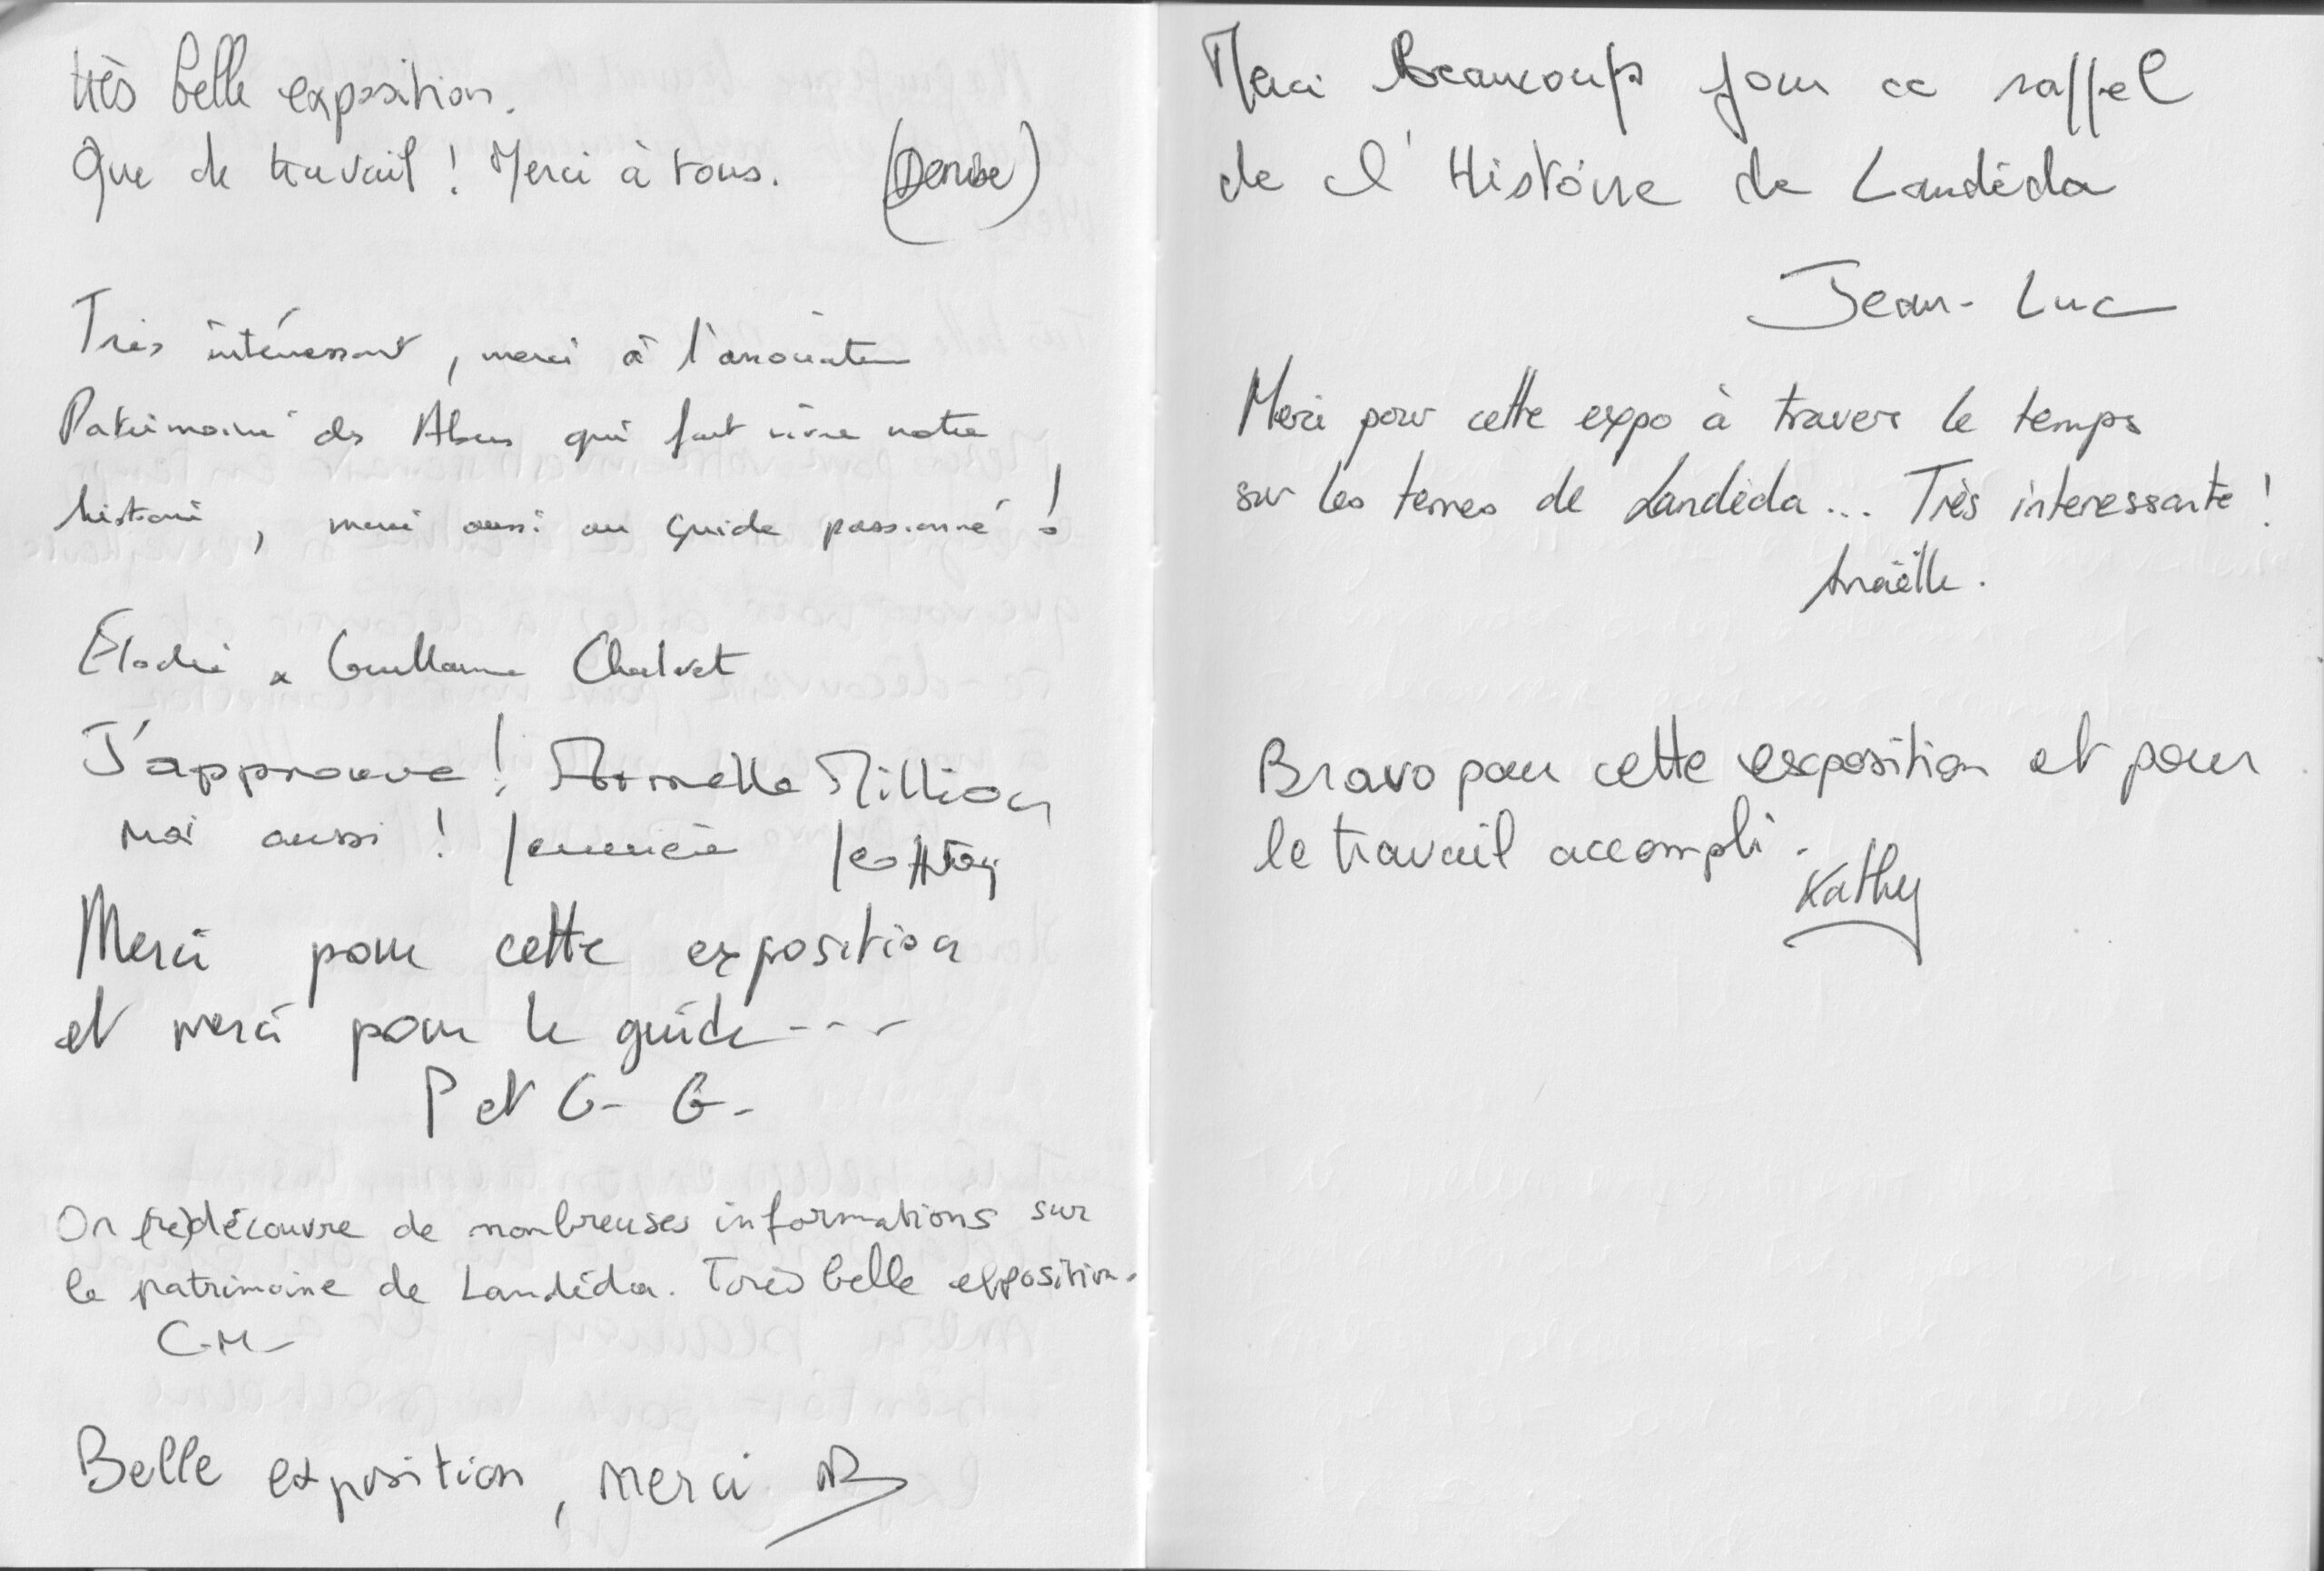 très belle exposition.
Que de travail ! Merci à tous. (Denise)
Très intéressant, merci à l'association
Patrimoine des Abers qui fait vivre notre
histoire, merci aussi au guide passionné !
Élodie & Guillaume Chalvet
J'approuve ! Armelle Million
Moi aussi !
Merci pour cette exposition
et merci pour le guide ---
P et G- G-
On (re)découvre de nombreuses informations sur
le patrimoine de Landéda. Très belle exposition.
C-M-
Belle exposition, merci
Merci Beaucoup pour ce rappel
de l'Histoire de Landéda
Jean-Luc
Merci pour cette expo à travers le temps
sur les terres de Landéda... Très interessante !
Anaëlle.
Bravo pour cette exposition et pour
le travail accompli.
Kathy